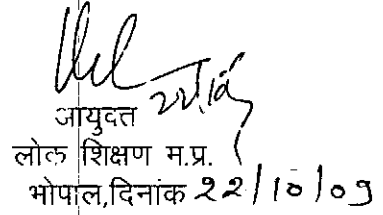 आयुक्त
लोक शिक्षण म.प्र.
भोपाल,दिनांक 22/10/09